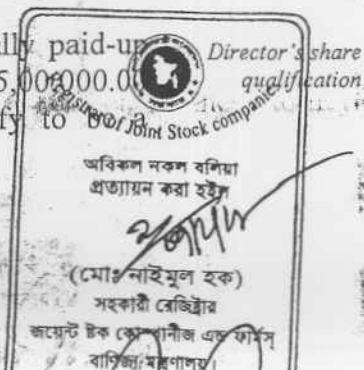 ally paid-up
Director's share
5,000,000.00
qualification
fy to be a
Registrar of Joint Stock companies
অবিকল নকল বলিয়া
প্রত্যায়ন করা হইল
(মোঃ নাইমুল হক)
সহকারী রেজিষ্ট্রার
জয়েন্ট ষ্টক কোম্পানীজ এন্ড ফার্মস্
বাণিজ্য মন্ত্রণালয়।